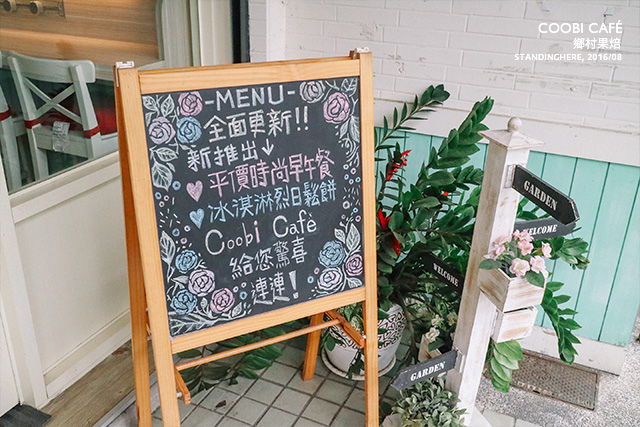 COOBI CAFÉ
鄉村果焙
STANDINGHERE, 2016/08
-MENU-
全面更新!!
新推出↓
平價時尚早午餐
冰淇淋烈日鬆餅
Coobi Cafè
給您驚喜
連連!
GARDEN
WELCOME
WELCOME
GARDEN